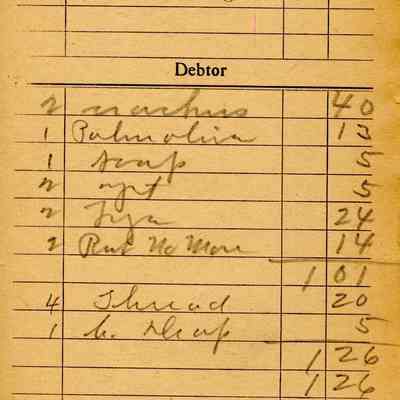 Debtor
2 40
1 Palmolive 13
1 Soap 5
2 5
2 24
2 Rub No More 14
1 01
4 Thread 20
1 5
1 26
1 26